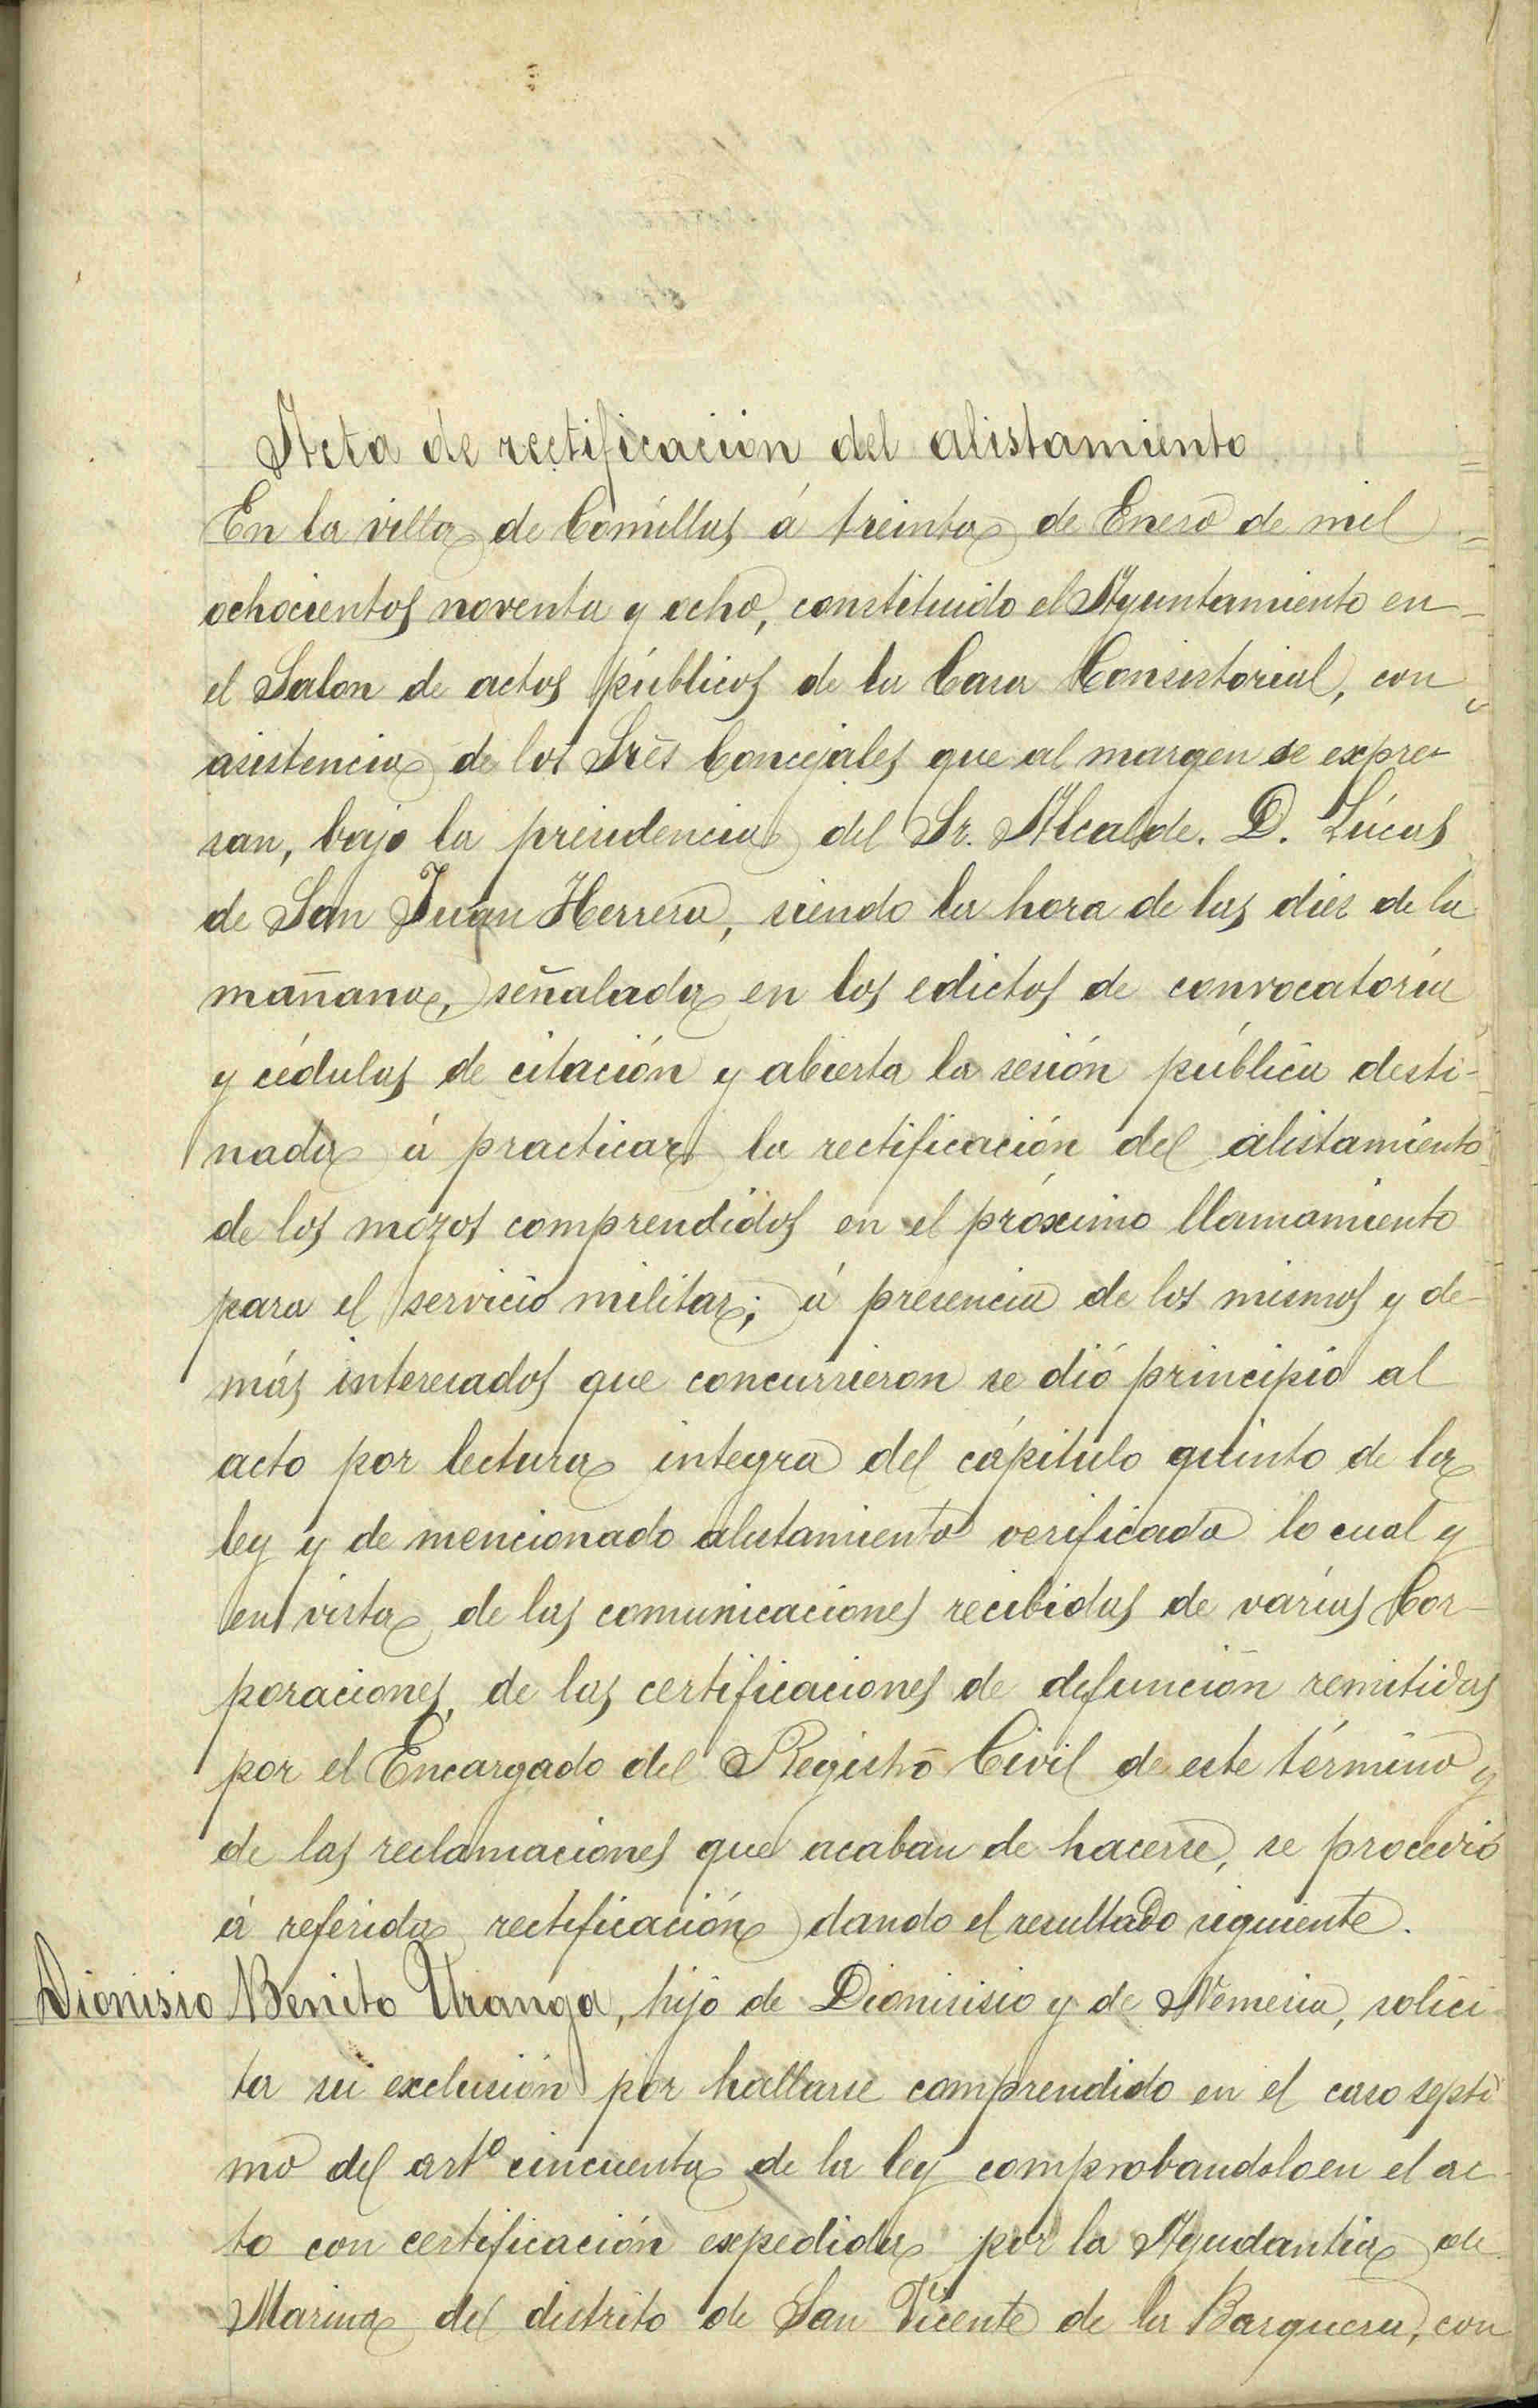 Acta de rectificación del alistamiento
En la villa de Comillas á treinta de Enero de mil
ochocientos noventa y ocho, constituido el Ayuntamiento en
el Salon de actos públicos de la Casa Consistorial, con
asistencia de los Sres Concejales que al margen se expre-
san, bajo la presidencia del Sr. Alcalde. D. Lúcas
de San Juan Herrera, siendo la hora de las diez de la
mañana, señalada en los edictos de convocatoria
y cédulas de citación y abierta la sesión pública desti-
nada á practicar la rectificación del alistamiento
de los mozos comprendidos en el próximo llamamiento
para el servicio militar; á presencia de los mismos y de-
más interesados que concurrieron se dió principio al
acto por lectura integra del cápitulo quinto de la
ley y de mencionado alistamiento verificada lo cual y
en vista de las comunicaciones recibidas de varias Cor-
poraciones, de las certificaciones de defunción remitidas
por el Encargado del Registro Civil de este término y
de las reclamaciones que acaban de hacerse, se procedió
á referida rectificación dando el resultado siguiente.
Dionisio Benito Uranga, hijo de Dionisisio y de Nemesia, solici-
ta su exclusión por hallarse comprendido en el caso septi
mo del artº cincuenta de la ley comprobandolo en el ac-
to con certificación expedida por la Ayudantia de
Marina del distrito de San Vicente de la Barquera, con